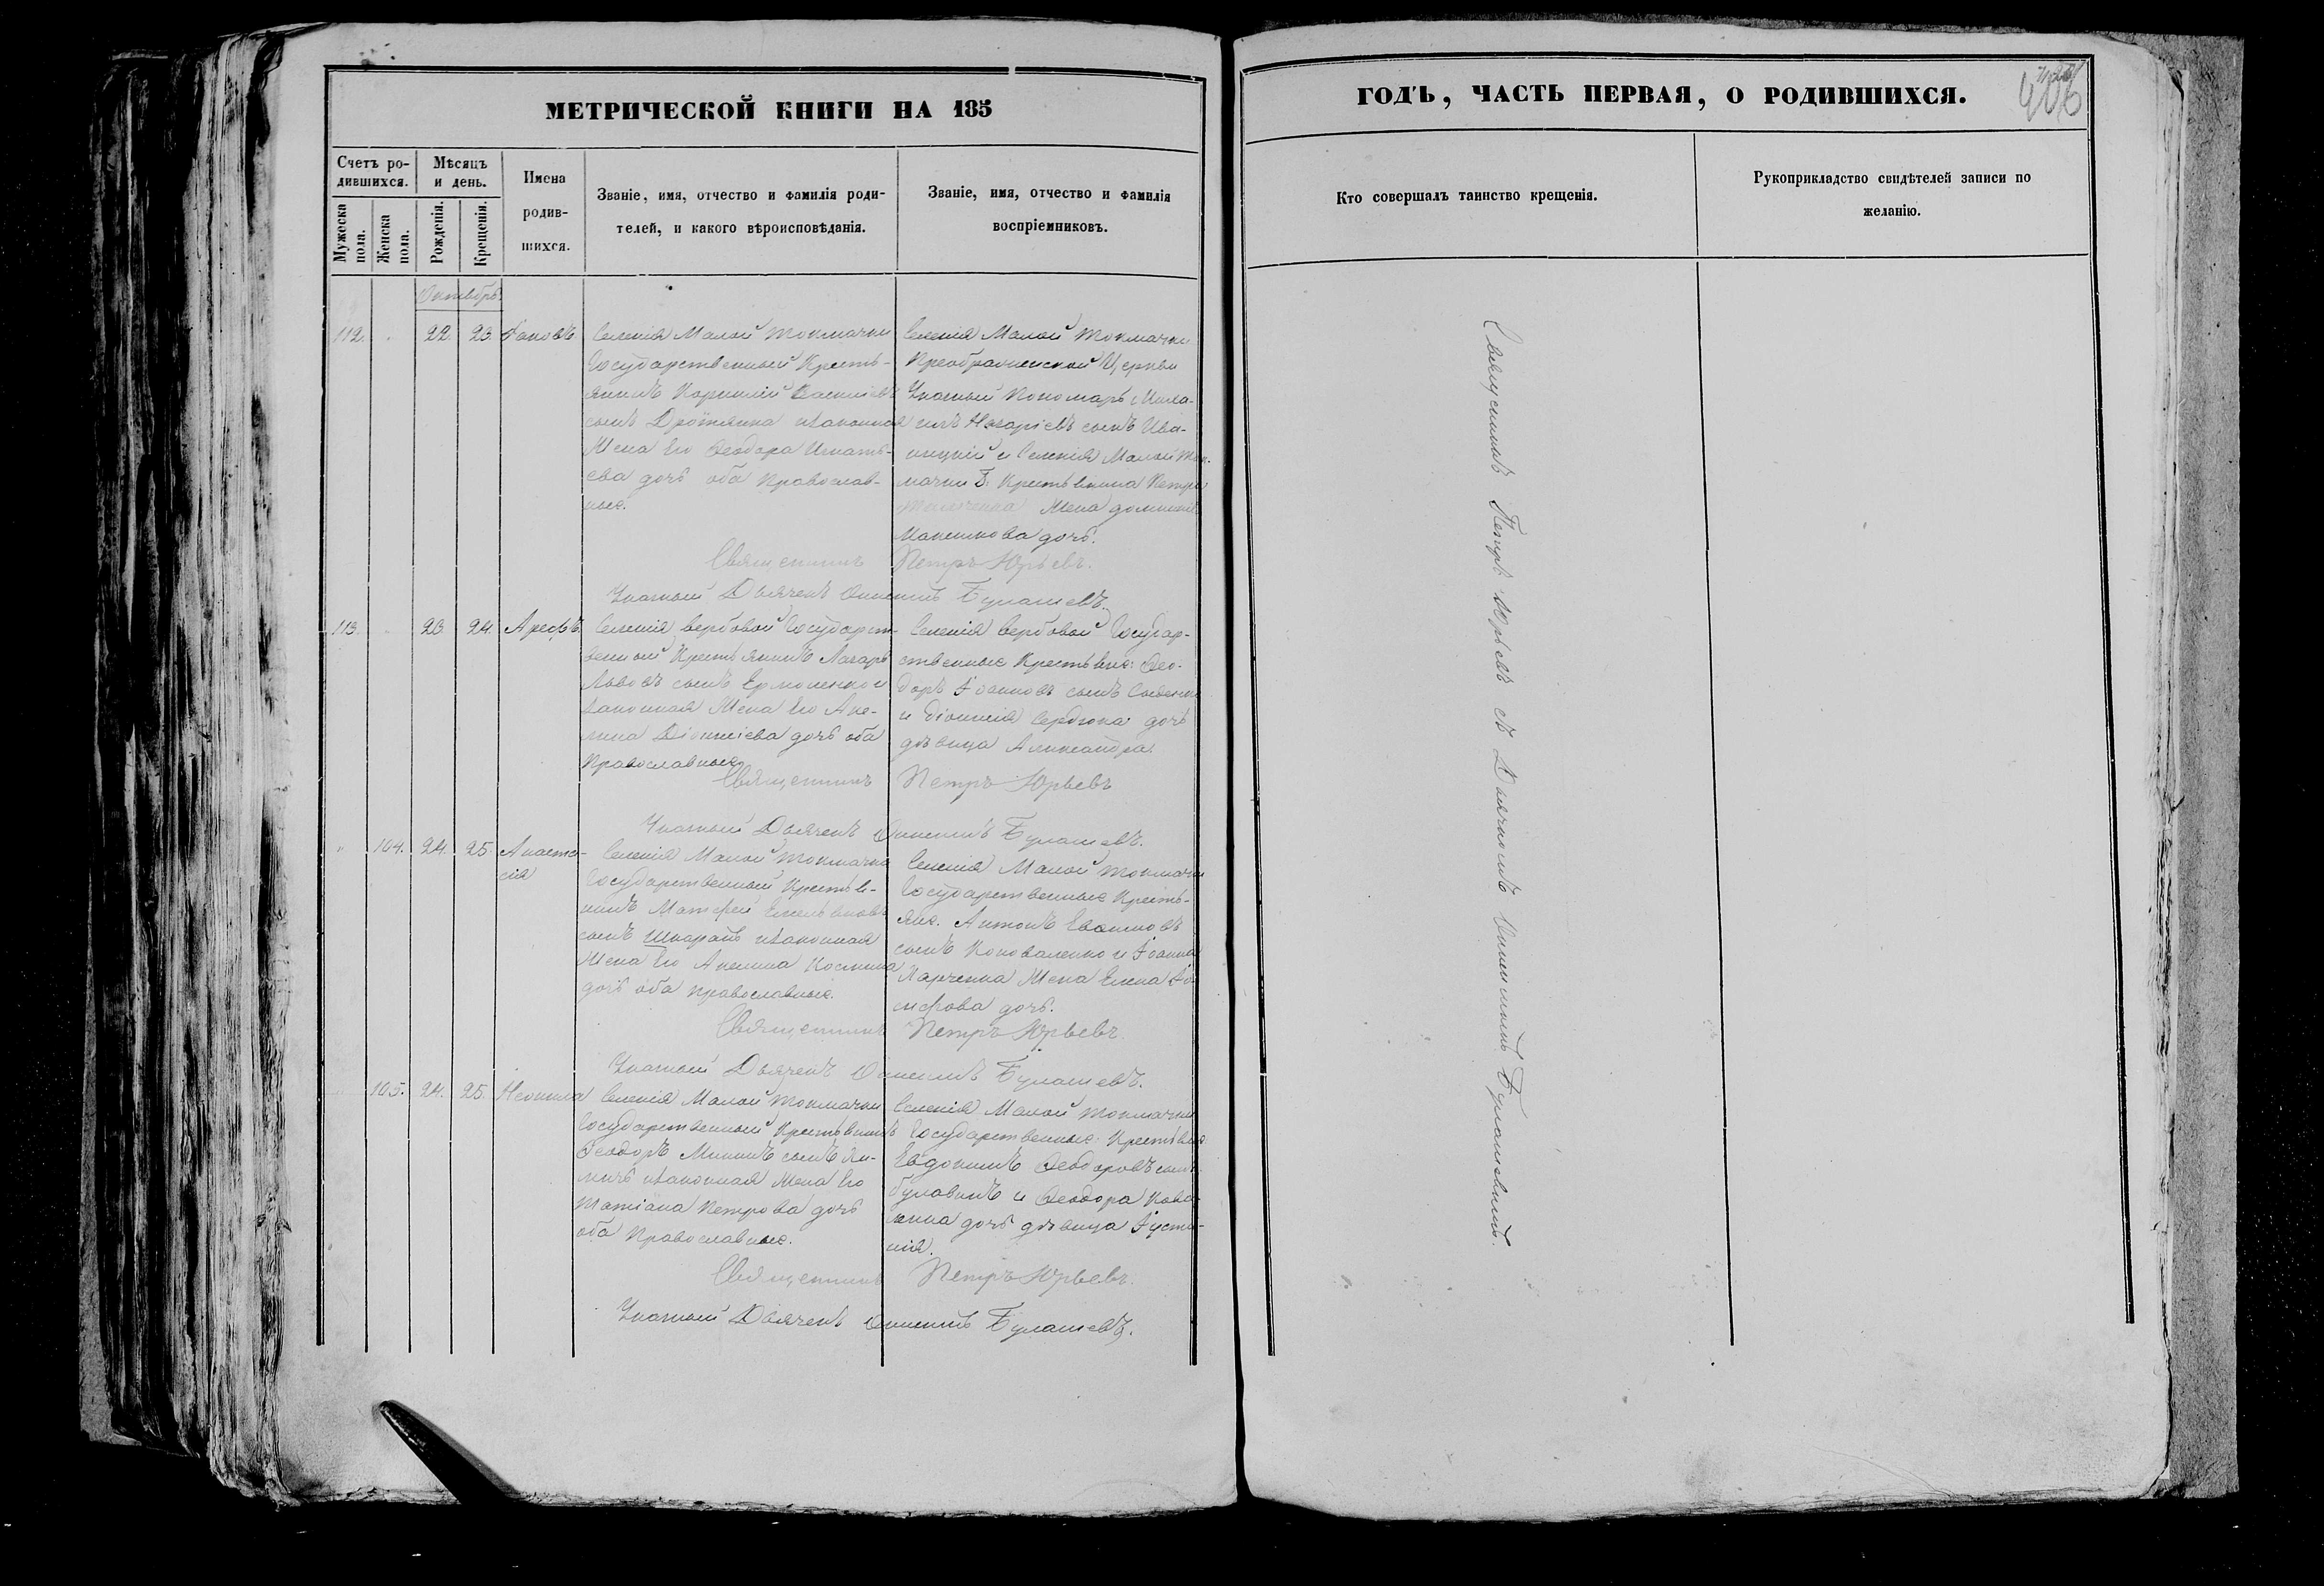 МЕТРИЧЕСКОЙ КНИГИ НА 185
Счетъ ро-
дившихся.
Мужеска
пола.
Женска
пола.
Мѣсяцъ
и день.
Рожденія.
Крещенія.
Имена
родив-
шихся.
Званіе, имя, отчество и фамилія роди-
телей, и какого вѣроисповѣданія.
Званіе, имя, отчество и фамилія
воспріемниковъ.
Октябрь
112. 22. 23. Іаковъ
Селенія Малой Токмачки
Государственный Кресть-
янинъ Корнилій Василіевъ
сынъ Дротянка и законная
Жена его Ѳеодора Игнать-
ева дочь оба Православ-
ные.
Селенія Малой Токмачки
Преображенской Церкви
Указный Пономарь Миха-
илъ Назаріевъ сынъ Ива-
ницкій и Селенія Малой Ток-
мачки Г. Крестьянина Петра
Жена
дочь.
Священникъ Петръ Юрьевъ.
Указный Дьячекъ Онисимъ Булашевъ.
113. 23. 24. Арефъ
Селенія Вербовой Государст-
венный Крестьянинъ Лазарь
Львовъ сынъ Ермоленко и
законная Жена его Аке-
лина Діонисіева дочь оба
Православные
Селенія Вербовой Государ-
ственные Крестьяне: Ѳео-
доръ Іоанновъ сынъ
и Діонисія Сердюка дочь
дѣвица Александра.
Священникъ Петръ Юрьевъ
Указный Дьячекъ Онисимъ Булашевъ.
104. 24. 25. Анаста-
сія
Селенія Малой Токмачки
Государственный Крестья-
нинъ Матфей Емельяновъ
сынъ Шкарапъ и законная
Жена его Акелина Космина
дочь оба православные.
Селенія Малой Токмачки
Государственные Кресть-
яне. Антонъ Ивановъ
сынъ Коноваленко и Іоанна
Харченка Жена Елена Іо-
сифова дочь.
Священникъ Петръ Юрьевъ.
Указный Дьячекъ Онисимъ Булашевъ.
105. 24. 25. Неонила
Селенія Малой Токмачки
Государственный Крестьянинъ
Ѳеодоръ Мининъ сынъ Яи-
личъ и законная Жена его
Татіана Петрова дочь
оба Православные.
Селенія Малой Токмачки
Государственные Крестьяне
Евдокимъ Ѳеодоровъ сынъ
Булавинъ и Ѳеодора
дочь дѣвица Іусти-
нія.
Священникъ Петръ Юрьевъ.
Указный Дьячекъ Онисимъ Булашевъ.
ГОДЪ, ЧАСТЬ ПЕРВАЯ, О РОДИВШИХСЯ.
406
Кто совершалъ таинство крещенія.
Рукоприкладство свидѣтелей записи по
желанію.
Священникъ Петръ Юрьевъ съ Дьячкомъ Онисимомъ Булашевымъ.